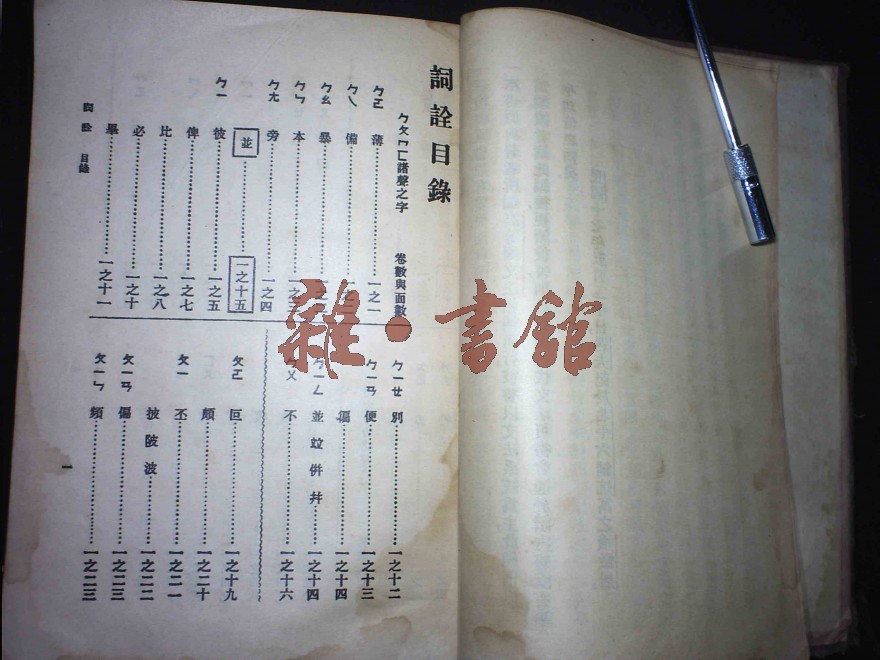 詞詮目錄
ㄅㄆㄇㄈ諸聲之字 卷數與面數
ㄅㄛ 薄 一之一
ㄅㄟ 備
ㄅㄠ 暴
ㄅㄣ 本
ㄅㄤ 旁 一之四
並 一之十五
ㄅㄧ 彼 一之五
俾 一之七
比 一之八
必 一之十
畢 一之十一
ㄅㄧㄝ 別 一之十二
ㄅㄧㄢ 便 一之十三
徧 一之十四
ㄅㄧㄥ 並竝併幷 一之十四
ㄅㄨ 不 一之十六
ㄆㄛ 叵 一之十九
頗 一之二十
ㄆㄧ 丕 一之二一
披陂波 一之二二
ㄆㄧㄢ 偏 一之二三
ㄆㄧㄣ 頻 一之二三
詞詮 目錄
一
雜·書館